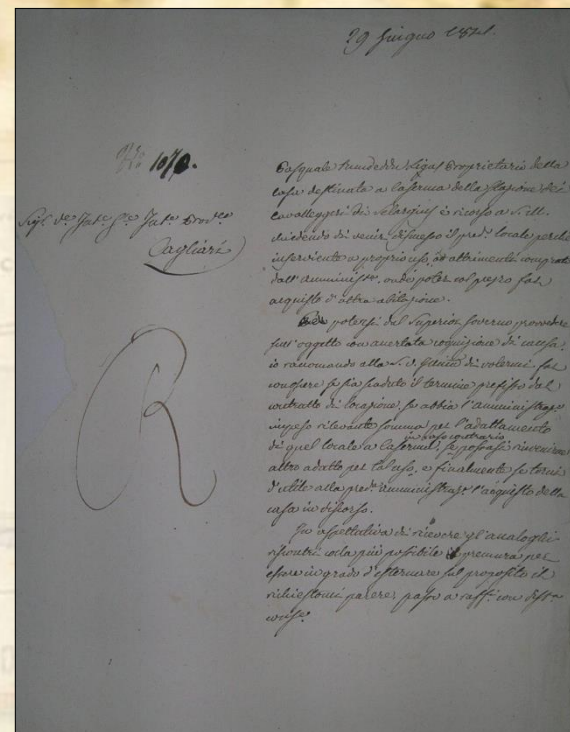 29 Giugno 1821.
N.° 1070.
Cagliari
R
Pasquale Ligas Proprietario della
casa destinata a Caserma della Stazione dei
Cavalleggeri di Selargius è ricorso a S. E.
chiedendo di venir dismesso il pred.° locale perché
inserviente a proprio uso, od altrimenti comprato
dall'amministr. onde poter col prezzo far
acquisto d'altra abitazione.
potersi dal Superior Governo provvedere
sull'oggetto con accertata cognizione di causa,
io raccomando alla S. V. di volermi far
conoscere se sia scaduto il termine prefisso dal
contratto di locazione, se abbia l'amministraz.
impeso rilevante somma per l'adattamento
in caso contrario
di quel locale a Caserma, se possasi rinvenire
altro adatto per tal uso, e finalmente se torni
d'utile alla pred. amministraz. l'acquisto della
casa in discorso.
In aspettativa di ricevere gl'analoghi
riscontri colla più possibile premura per
essere in grado d'esternare sul proposito il
richiestomi parere, passo a raff. con dist.